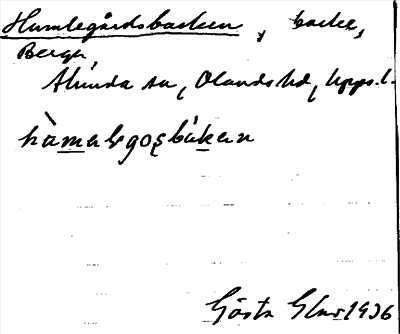 Humlegårdsbacken, backe,
Berga,
Alunda sn, Olands hd, Upps. l.
hàmalegosbákan
Gösta 1936